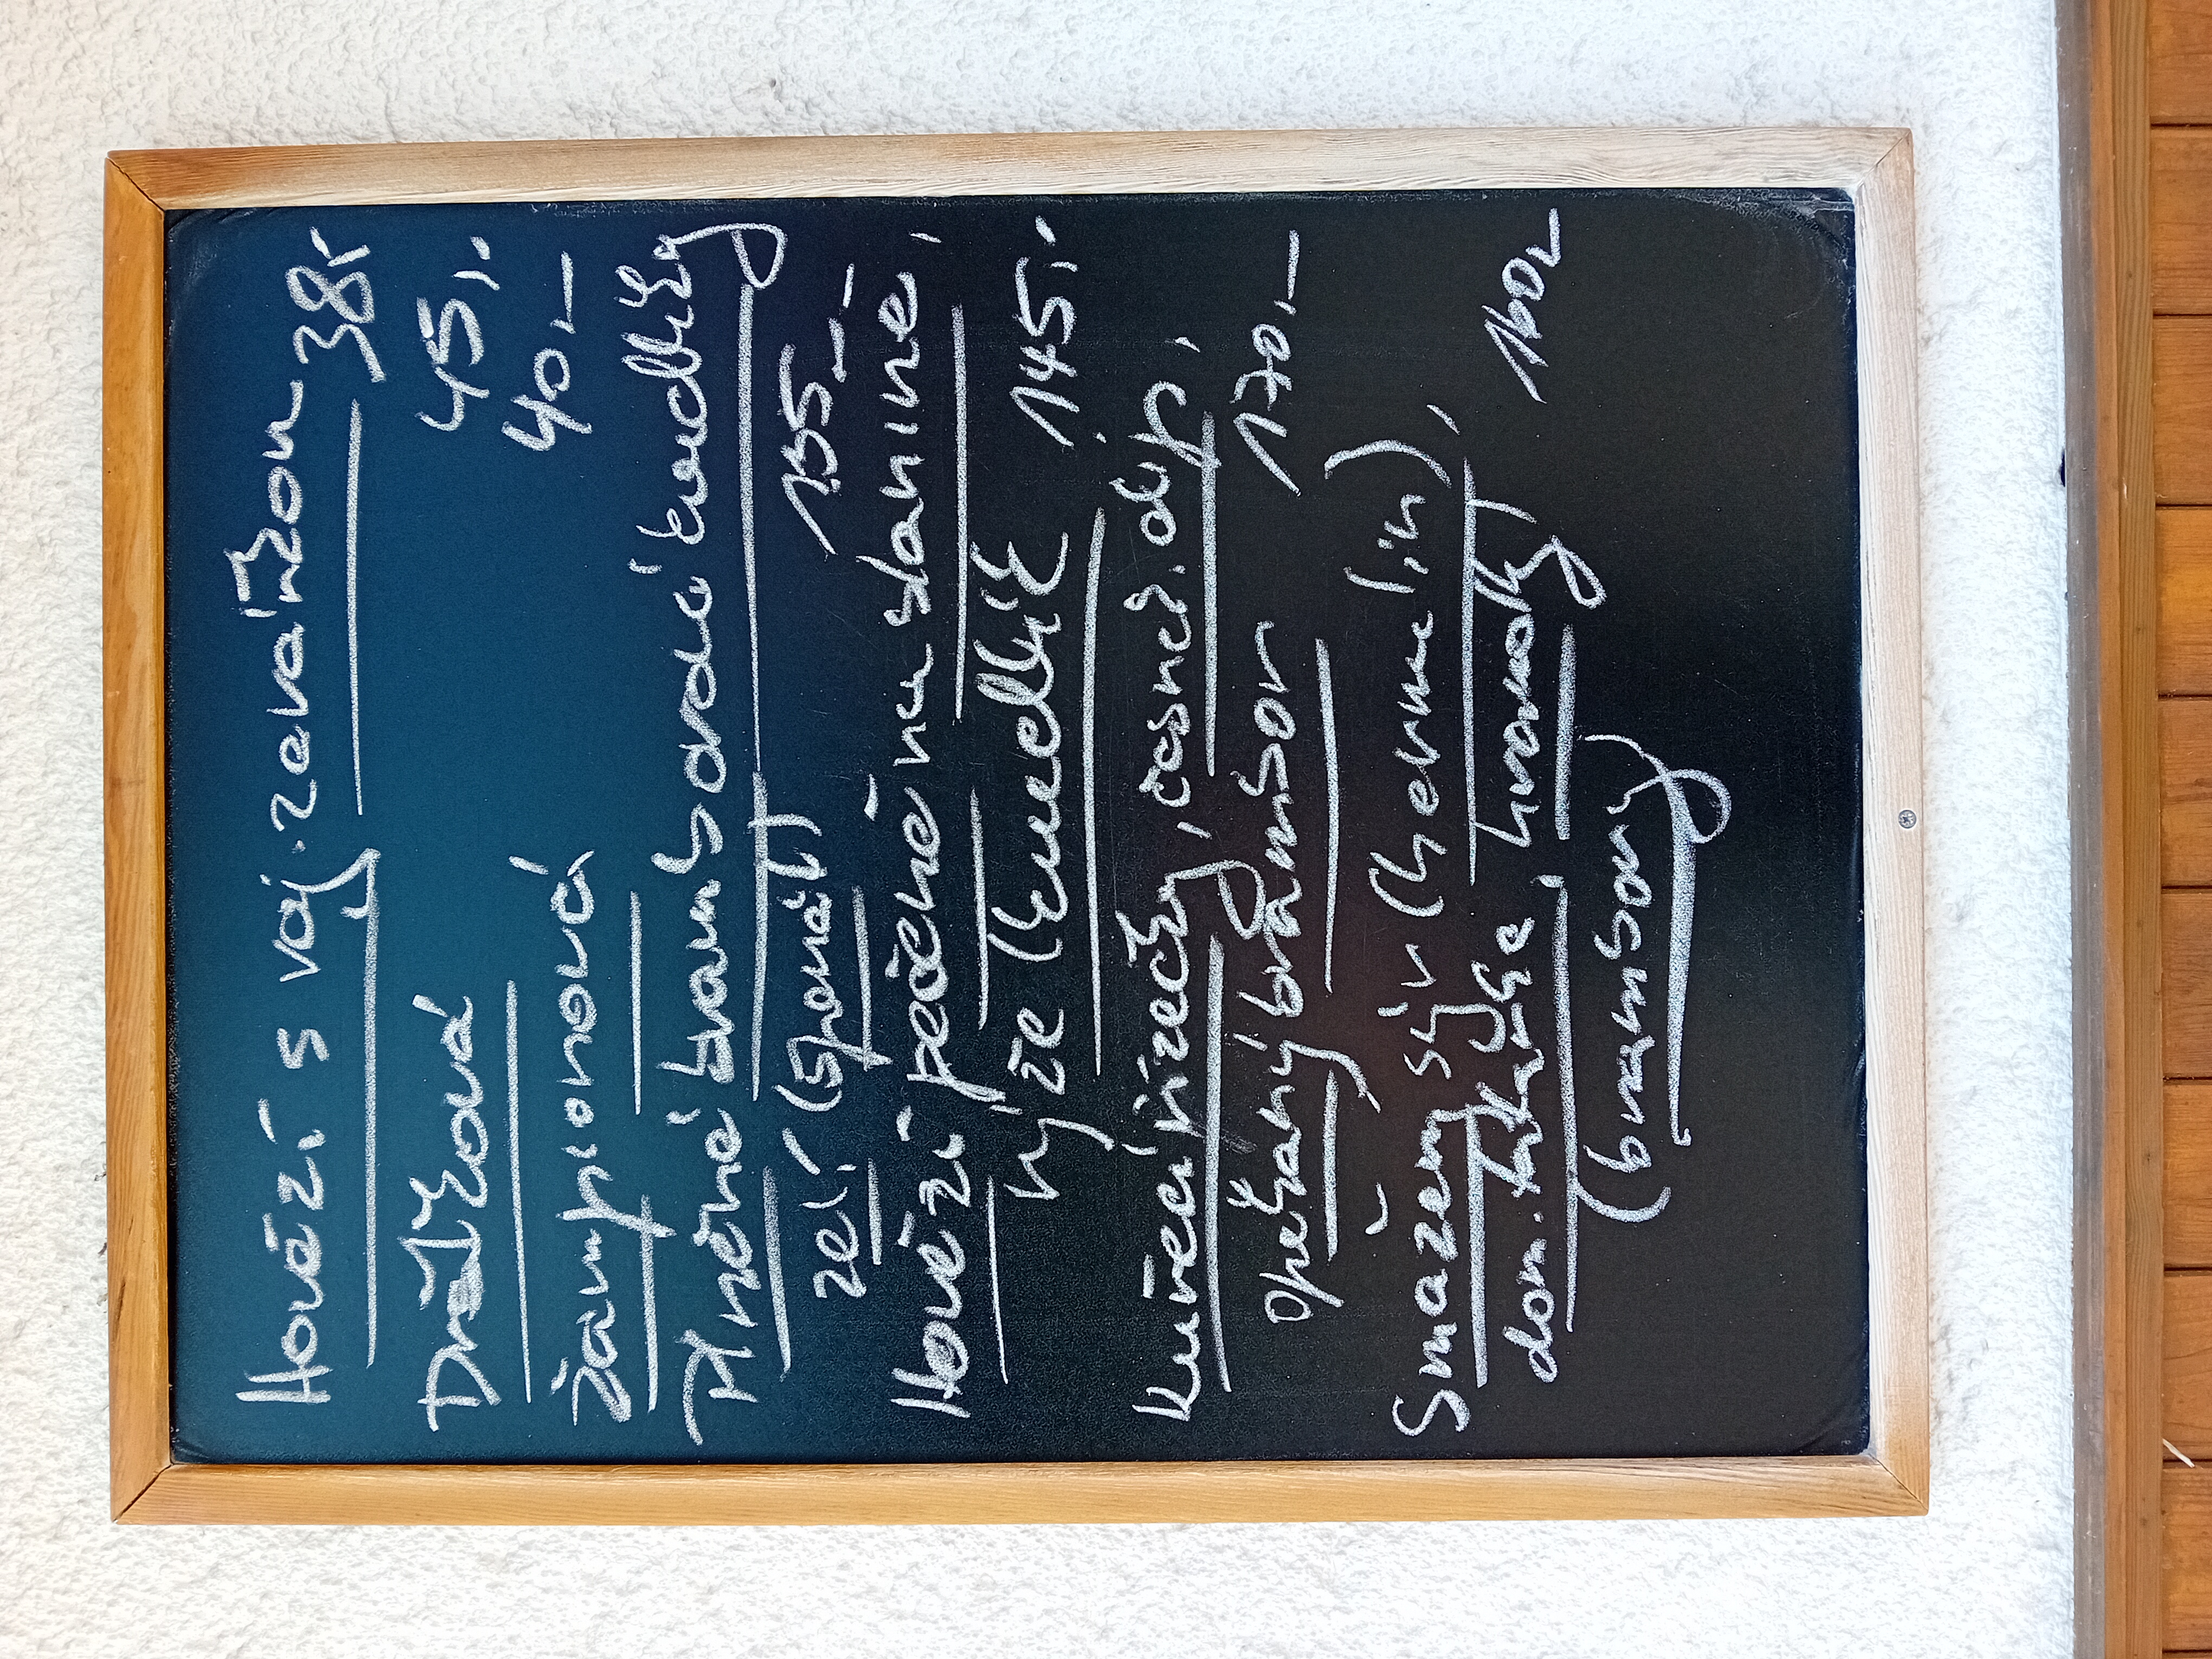 Hovězí s vaj. zavářkou 38,-
Dršťková 45,-
Žampionová 40,-
Plněné bramborové knedlíky
zelí (špenát) 155,-
Hovězí pečeně na slanině,
rýže (knedlík) 145,-
Kuřecí řízečky, česnek. dip,
opékaný brambor 170,-
Smažený sýr (hermelín),
dom. tatarka, hranolky 160,-
(brambory)